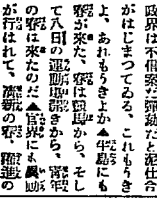 政界は不信案だ彈劾だと泥仕合
がはじまつてゐる、これもうき
よ、あれもうきよか▲半島にも
春が來た、春は競馬から、そし
て八日の運動場開きから、官界
の春は來たのだ▲官界にも異動
が行はれて、清新の春、躍進の